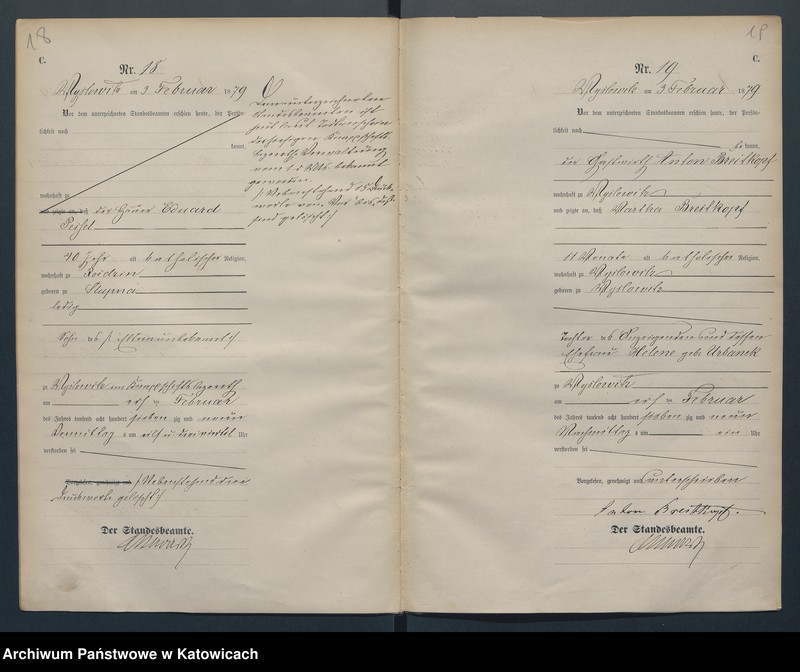 18
C.
Nr. 18
Myslowitz am 3 Februar 1879
Vor dem unterzeichneten Standesbeamten erschien heute, der Persön-
lichkeit nach
kannt,
wohnhaft zu
und zeigte an, daß der Häuer Eduard
Peschel
40 Jahr alt katholischer Religion,
wohnhaft zu Rosdzin
geboren zu Slupna
ledig
Sohn des / Eltern unbekannt /
zu Myslowitz im Knappschafts Lazareth
am ersten Februar
des Jahres tausend acht hundert sieben zig und neun
Vormittag s um elf u dreiviertel Uhr
verstorben sei
Vorgelesen, genehmigt und / Nebenstehend drei
Druckworte gelöscht /
Der Standesbeamte.
Dem unterzeichneten
Standesbeamten ist
Knappschafts
Lazareth Verwaltung
vom 1 d Mts. bekannt
geworden.
/ Nebenstehend 15 Druck-
worte vom Vor bis daß
sind gelöscht /
19
C.
Nr. 19
Myslowitz am 3 Februar 1879
Vor dem unterzeichneten Standesbeamten erschien heute, der Persön-
lichkeit nach
be kannt,
der Gastwirth Anton Breitkopf
wohnhaft zu Myslowitz
und zeigte an, daß Martha Breitkopf
11 Monate alt katholischer Religion,
wohnhaft zu Myslowitz
geboren zu Myslowitz
Tochter des Anzeigenden und dessen
Ehefrau Helene geb. Urbanek
zu Myslowitz
am ersten Februar
des Jahres tausend acht hundert sieben zig und neun
Nachmittag s um ein Uhr
verstorben sei
Vorgelesen, genehmigt und unterschrieben
Anton Breitkopf.
Der Standesbeamte.
Archiwum Państwowe w Katowicach